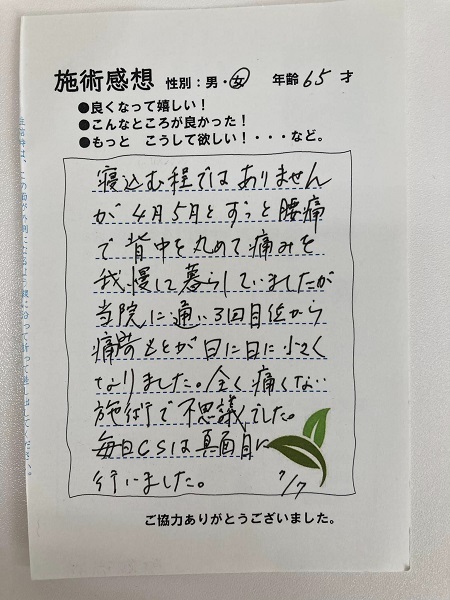 施術感想 性別：男・女 年齢 65 才
●良くなって嬉しい！
●こんなところが良かった！
●もっと こうして欲しい！・・・など。
寝込む程ではありません
が4月5月とずっと腰痛
で背中を丸めて痛みを
我慢して暮らしていましたが
当院に通い3回目位から
痛みもとが日に日に小さく
なりました。全く痛くない
施術で不思議でした。
毎日CSは真面目に
行いました。
7/7
ご協力ありがとうございました。